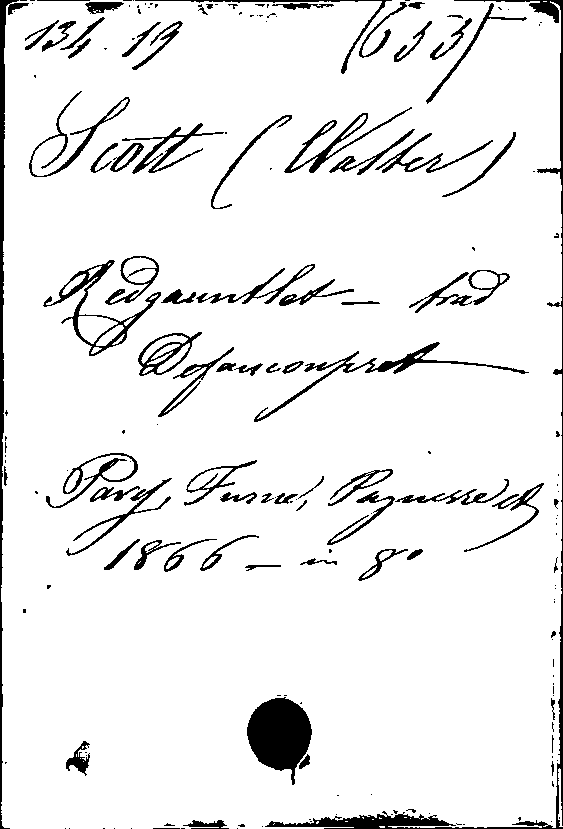 134.19 (633)
Scott (Walter)
Redgauntlet — trad
Defauconpret
Paris, Furne, Pagnerre et
1866 — in 8°